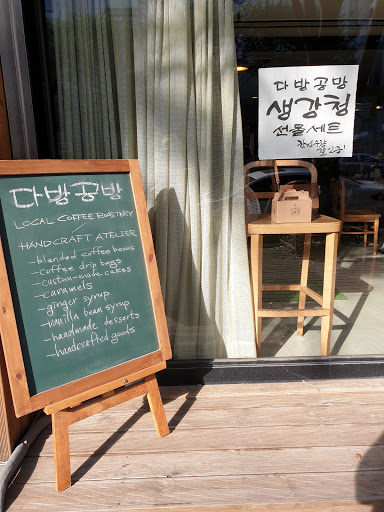 다방공방
LOCAL COFFEE ROASTERY
/
HANDCRAFT ATELIER
-blended coffee beans
-coffee drip bags
-custom-made cakes
-caramels
-ginger syrup
-vanilla bean syrup
-handmade desserts
-handcrafted goods
다방공방
생강청
선물세트